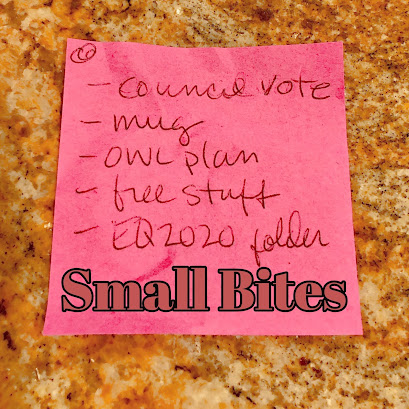 - council vote
- mug
- OWL plan
- free stuff
- EQ2020 folder
Small Bites